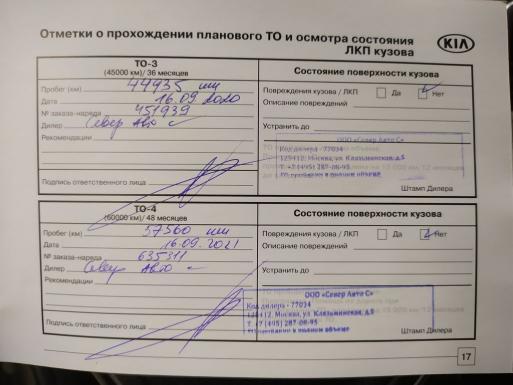 Отметки о прохождении планового ТО и осмотра состояния
ЛКП кузова
KIA
ТО-3
(45000 км)/ 36 месяцев
Состояние поверхности кузова
Пробег (км) 44935 км
Повреждения кузова / ЛКП Да Нет
Дата 16.09.2020
Описание повреждений
№ заказа-наряда 451939
Дилер Север Авто с
Устранить до
Рекомендации
ООО «Север Авто С»
Код дилера - 77034
129412, Москва, ул. Клязьминская, д.5
Т. +7 (495) 287-08-95
ТО проведено в полном объеме
Подпись ответственного лица
Штамп Дилера
ТО-4
(60000 км)/ 48 месяцев
Состояние поверхности кузова
Пробег (км) 57560 км
Повреждения кузова / ЛКП Да Нет
Дата 16.09.2021
Описание повреждений
№ заказа-наряда 635311
Дилер Север Авто с
Устранить до
Рекомендации
ООО «Север Авто С»
Код дилера - 77034
129412, Москва, ул. Клязьминская, д.5
Т. +7 (495) 287-08-95
ТО проведено в полном объеме
Подпись ответственного лица
Штамп Дилера
17